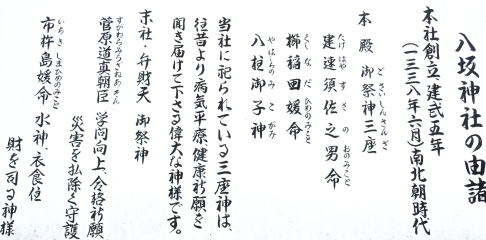 八坂神社の由諸
本社創立、建武五年
(一三三八年六月)南北朝時代
本殿 御祭神三座
ごさいしんさんざ
建速須佐之男命
たけはやすさのおのみこと
櫛稲田媛命
くしなだひめのみこと
八柱御子神
やはしらのみこがみ
当社に祀られている三座神は、
往昔より病気平療、健康祈願を
聞き届けて下さる偉大な神様です。
末社・弁財天 御祭神
菅原道真朝臣 学問向上、合格祈願
すがわらみちざねあそん
災害を払除く守護
市杵島媛命 水神、衣食住
いちきしまひめのみこと
財を司る神様